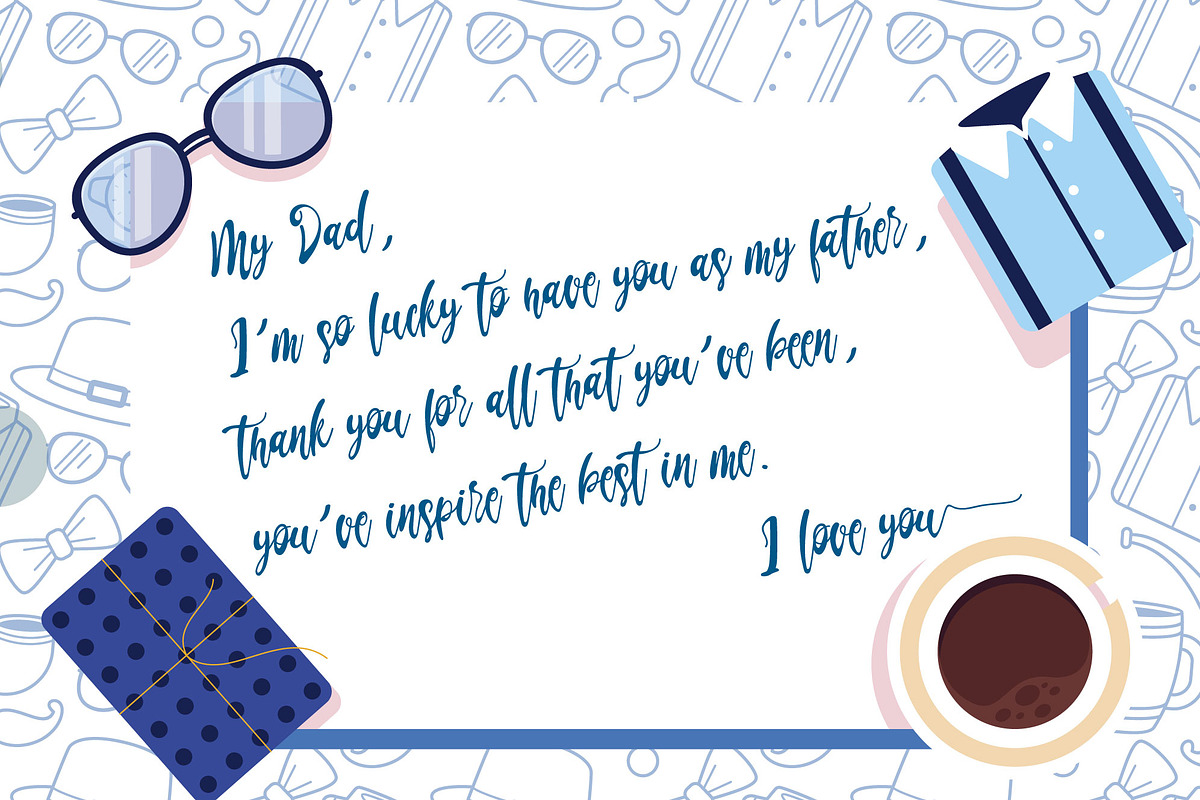 My Dad,
I'm so lucky to have you as my father,
thank you for all that you've been,
you've inspire the best in me.
I love you